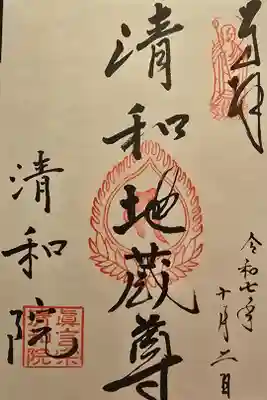 奉拝
令和七年
十月二日
清和地蔵尊
清和院